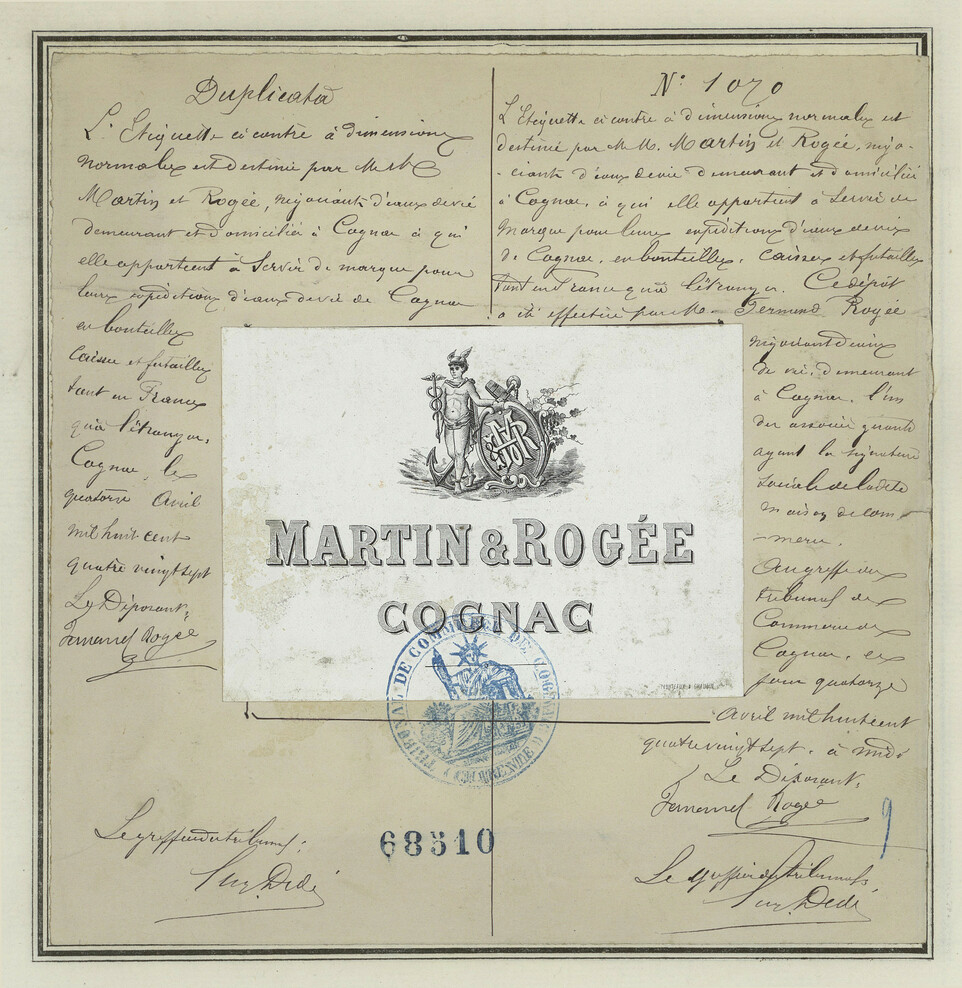 Duplicata
L'Etiquette ci contre à dimensions
normales est destinée par M. M.
Martin et Rogée, négociants d'eaux de vie
demeurant et domiciliés à Cognac à qui
elle appartient à Servir de marque pour
leurs expéditions d'eaux de vie de Cognac
en bouteilles
Caisses et futailles
tant en France
qu'à l'étranger.
Cognac, le
quatorze Avril
mil huit cent
quatre vingt sept
Le Déposant,
Fernand Rogée
Le greffier du tribunal:
N° 1070
L'Etiquette ci contre à dimensions normales est
destinée par M. M. Martin et Rogée, négo-
-ciants d'eaux de vie demeurant et domiciliés
à Cognac, à qui elle appartient à Servir de
marque pour leurs expéditions d'eaux de vie
de Cognac, en bouteilles, caisses et futailles
tant en France qu'à l'étranger. Ce dépôt
a été effectué par M. Fernand Rogée
négociant d'eaux
de vie, demeurant
à Cognac, l'un
des associés gérants
ayant la signature
sociale de la dite
maison de com-
-merce.
Au greffe du
tribunal de
Commerce de
Cognac, ce
jour quatorze
Avril mil huit cent
quatre vingt sept, à midi
Le Déposant,
Fernand Rogée
Le greffier du tribunal,
MARTIN & ROGÉE
COGNAC
TRIBUNAL DE COMMERCE DE COGNAC
(CHARENTE)
68510
9